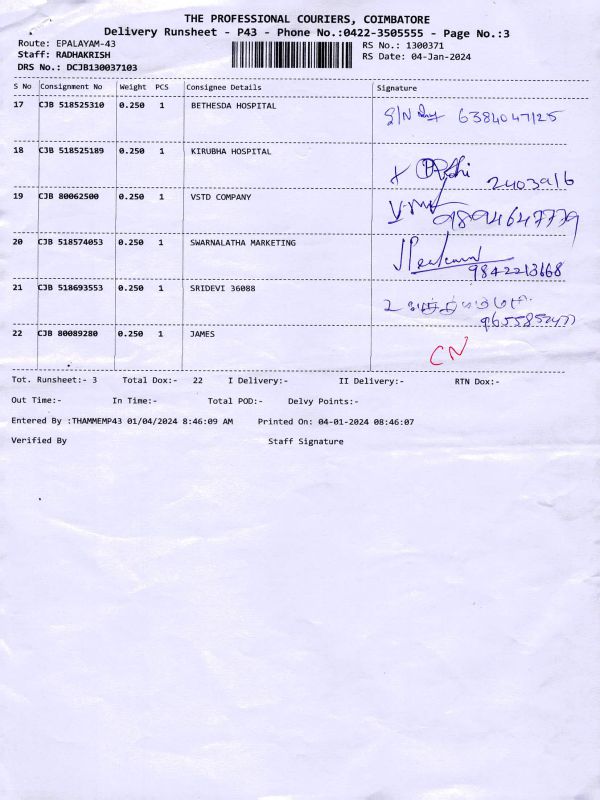 THE PROFESSIONAL COURIERS, COIMBATORE
Delivery Runsheet - P43 - Phone No.:0422-3505555 - Page No.:3
Route: EPALAYAM-43
RS No.: 1300371
Staff: RADHAKRISH
RS Date: 04-Jan-2024
DRS No.: DCJB130037103
S No Consignment No Weight PCS Consignee Details Signature
17 CJB 518525310 0.250 1 BETHESDA HOSPITAL S/N 6384047125
18 CJB 518525189 0.250 1 KIRUBHA HOSPITAL
2403916
19 CJB 80062500 0.250 1 VSTD COMPANY
9894647779
20 CJB 518574053 0.250 1 SWARNALATHA MARKETING
9842213668
21 CJB 518693553 0.250 1 SRIDEVI 36088
22 CJB 80089280 0.250 1 JAMES
CN
Tot. Runsheet:- 3 Total Dox:- 22 I Delivery:- II Delivery:- RTN Dox:-
Out Time:- In Time:- Total POD:- Delvy Points:-
Entered By :THAMMEMP43 01/04/2024 8:46:09 AM Printed On: 04-01-2024 08:46:07
Verified By Staff Signature